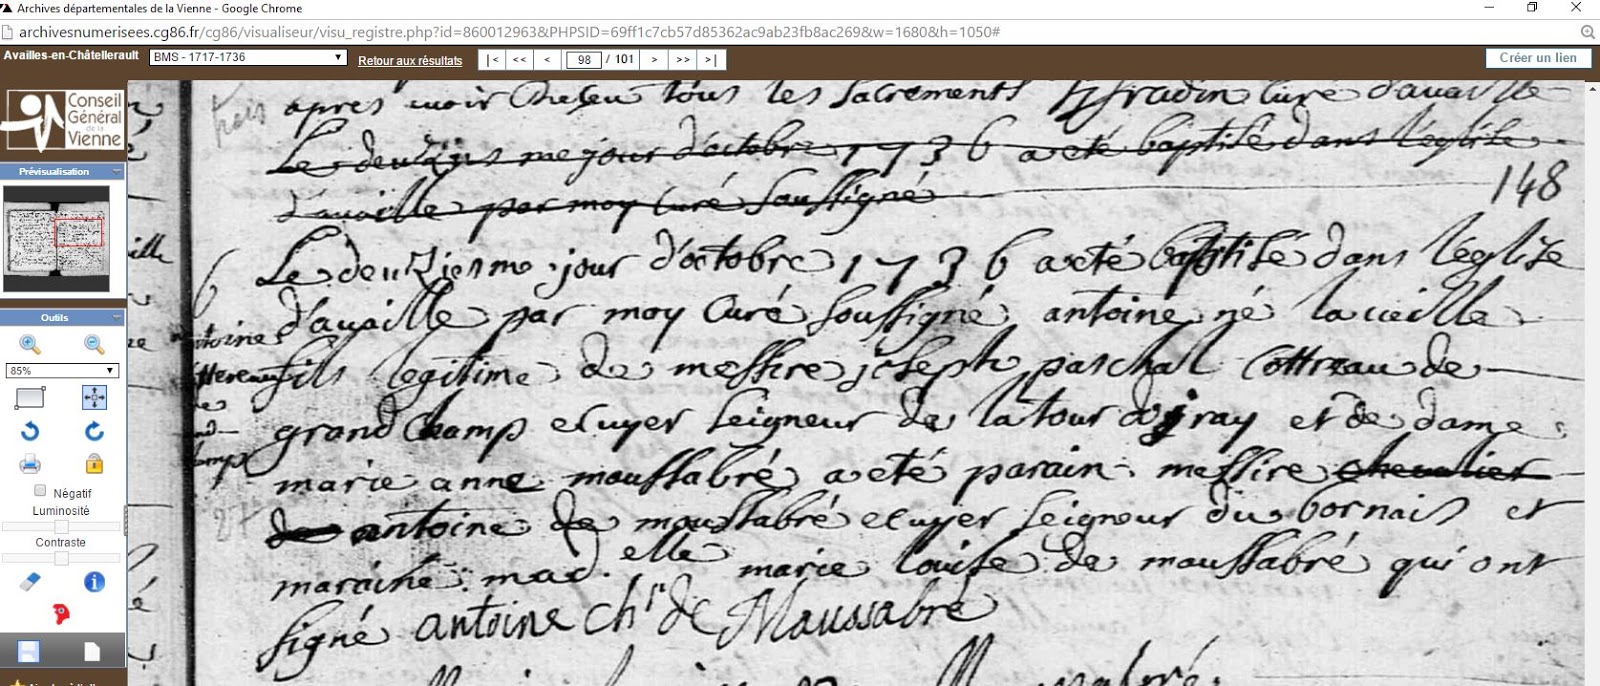 Archives départementales de la Vienne - Google Chrome
archivesnumerisees.cg86.fr/cg86/visualiseur/visu_registre.php?id=860012963&PHPSID=69ff1c7cb57d85362ac9ab23fb8ac269&w=1680&h=1050#
Availles-en-Châtellerault BMS - 1717-1736 Retour aux résultats |< << < 98 / 101 > >> >| Créer un lien
Conseil
Général
de la
Vienne
Prévisualisation
Outils
85%
Négatif
Luminosité
Contraste
apres avoir tous les sacrements fradin curé d'availle
Le deuziesme jour d'octobre 1736 a eté baptisé dans l'eglise
d'availle par moy curé soussigné
148
Le deuziesme jour d'octobre 1736 a eté baptisé dans l'eglise
d'availle par moy curé soussigné antoine né la veille
fils legitime de messire joseph paschal Cottreau de
grandchamp ecuyer seigneur de la tour et de dame
marie anne moussabré a eté parain messire chevalier
de antoine de moussabré ecuyer seigneur du bornais et
maraine mad.elle marie louise de moussabré qui ont
signé antoine ch.r de Maussabré